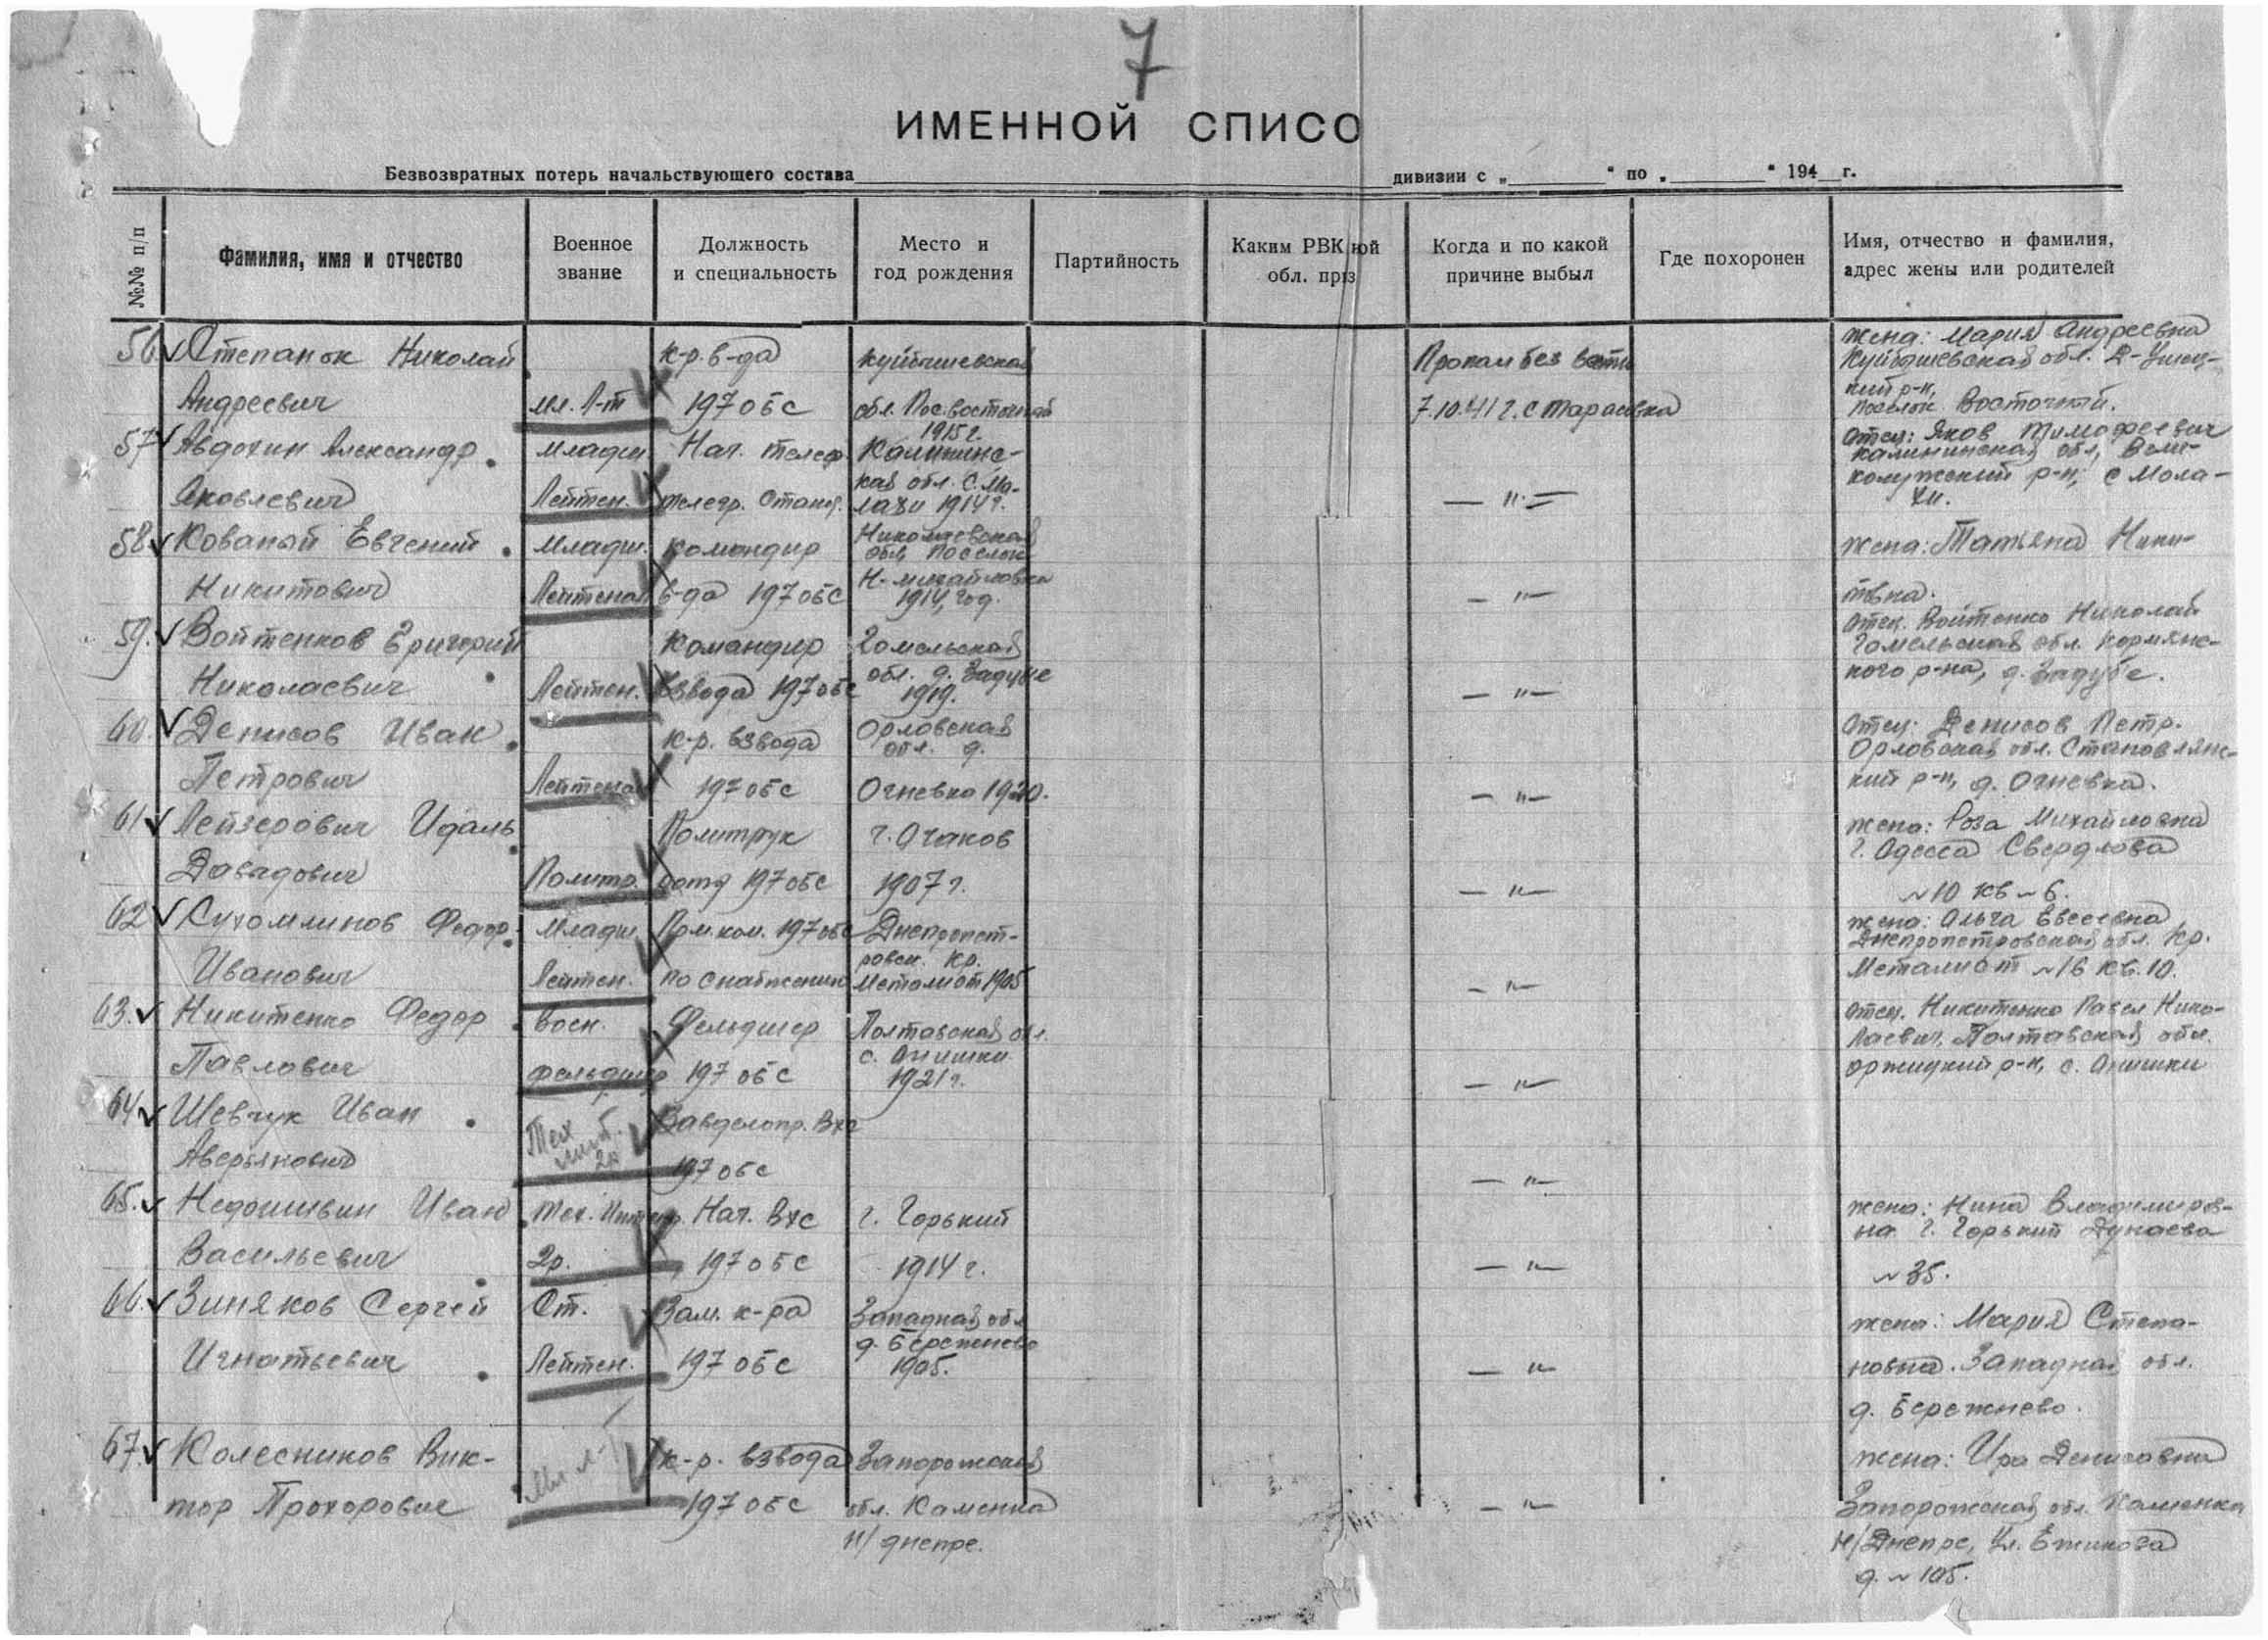 7
ИМЕННОЙ СПИСО
Безвозвратных потерь начальствующего состава дивизии с „ " по „ " 194 г.
№№ п/п
Фамилия, имя и отчество
Военное
звание
Должность
и специальность
Место и
год рождения
Партийность
Каким РВК юй
обл. приз
Когда и по какой
причине выбыл
Где похоронен
Имя, отчество и фамилия,
адрес жены или родителей
56. Степанок Николай
Андреевич
мл. Л-т
к-р. в-да
197 обс
Куйбышевская
обл. Пос. восточный
1915 г.
Пропал без вести
7.10.41 г. с Тарасовка
жена: Мария Андреевна
Куйбышевская обл.
кий р-н,
поселок Восточный.
57 Авдохин Александр
Яковлевич
Младш.
Лейтен.
Нач. телеф.
телегр. Станц.
Калининс-
кая обл. С. Мо-
лази 1914 г.
— " —
отец: Яков Тимофеевич
Калининская обл, Вели-
колужский р-н, с Мола-
зи.
58 Кованый Евгений
Никитович
Младш.
Лейтенан
командир
в-да 197 обс
Николаевская
обл, поселок
Н-михайловка
1914, год.
— " —
жена: Татьяна Ники-
товна.
59. Войтенков Григорий
Николаевич
Лейтен.
Командир
взвода 197 обс
Гомельская
обл. д. Задубье
1919.
— " —
отец. Войтенко Николай
Гомельская обл. Кормянс-
кого р-на, д. Задубе.
60. Денисов Иван
Петрович
Лейтенан
к-р. взвода
197 обс
Орловская
обл. д.
Огневка 1920.
— " —
отец: Денисов Петр.
Орловская обл. Становлянс-
кий р-н, д. Огневка.
61 Лейзерович Идаль
Давадович
Политр.
Политрук
роты 197 обс
г. Очаков
1907 г.
— " —
жена: Роза Михайловна
г. Одесса Свердлова
№ 10 кв № 6.
62 Сухомлинов Федор
Иванович
Младш.
Лейтен.
Пом. ком. 197 обс
по снабжению
Днепропет-
ровск. Кр.
Металист 1905
— " —
жена: Ольга Евсеевна
Днепропетровская обл. Кр.
Металист № 16 кв. 10.
63. Никитенко Федор
Павлович
Воен.
фельдшер
Фельдшер
197 обс
Полтавская обл.
с. Онишки
1921 г.
— " —
отец. Никитенко Павел Нико-
лаевич, Полтавская обл.
оржицкий р-н, с. Онишки
64 Шевчук Иван
Аверьянович
Тех
инт.
2р
Завделопр. Вхс
197 обс
— " —
65. Недошивин Иван
Васильевич
Тех. Интенд.
2р.
Нач. Вхс
197 обс
г. Горький
1914 г.
— " —
жена: Нина Владимиров-
на г. Горький Дунаева
№ 35.
66. Зиняков Сергей
Игнатьевич
Ст.
Лейтен.
Зам. к-ра
197 обс
Западная обл
д. Бережнево
1905.
— " —
жена: Мария Степа-
новна. Западная обл.
д. Бережнево.
67. Колесников Вик-
тор Прохорович
Мл л-т
к-р. взвода
197 обс
Запорожская
обл. Каменка
н/днепре.
— " —
жена: Ира Денисовна
Запорожская обл. Каменка
н/Днепре, ул. Ежикова
д. № 105.